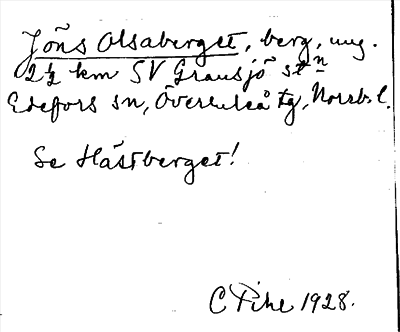 Jöns Olsaberget, berg, ung.
2½ km SV Gransjö stn
Edefors sn, Överluleå tg, Norrb. l.
Se Hästberget!
C Pihl 1928.